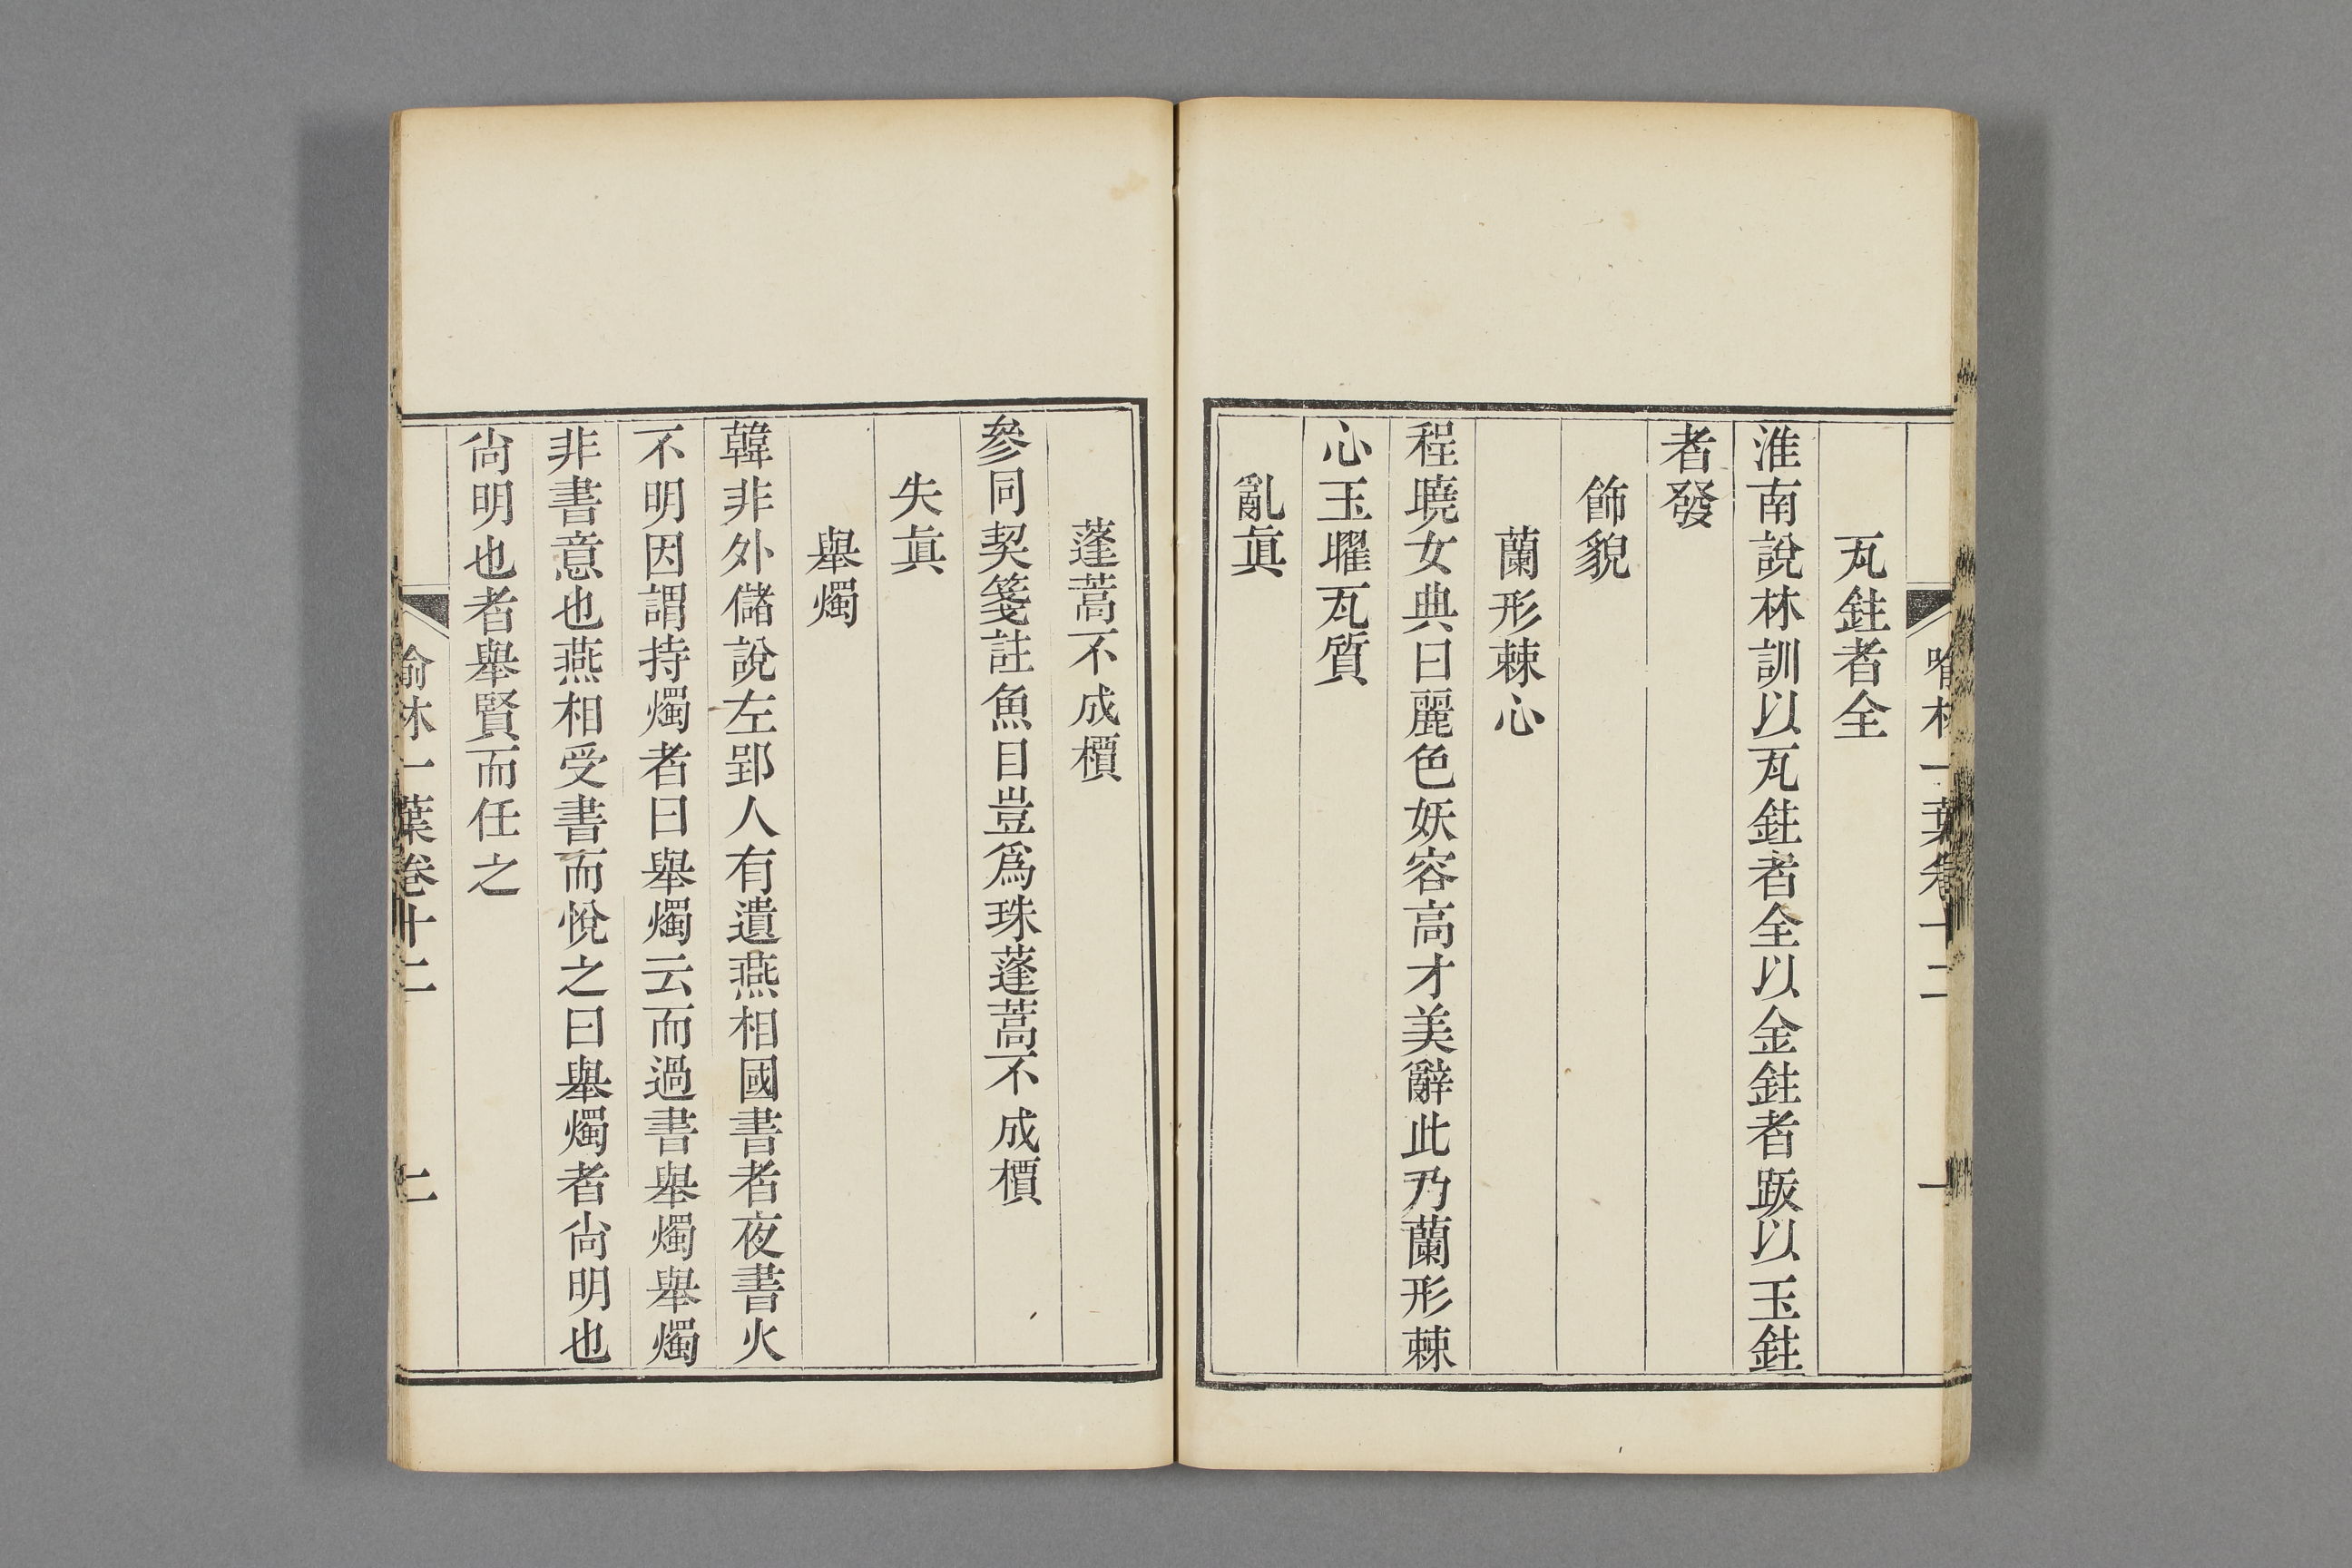 喻林一葉卷十二 一
瓦鉒者全
淮南說林訓以瓦鉒者全以金鉒者跋以玉鉒
者發
飾貌
蘭形棘心
程曉女典曰麗色妖容高才美辭此乃蘭形棘
心玉曜瓦質
亂眞
蓬蒿不成檟
參同契箋註魚目豈爲珠蓬蒿不成檟
失眞
舉燭
韓非外儲說左郢人有遺燕相國書者夜書火
不明因謂持燭者曰舉燭云而過書舉燭舉燭
非書意也燕相受書而悅之曰舉燭者尙明也
尙明也者舉賢而任之
喻林一葉卷十二 二